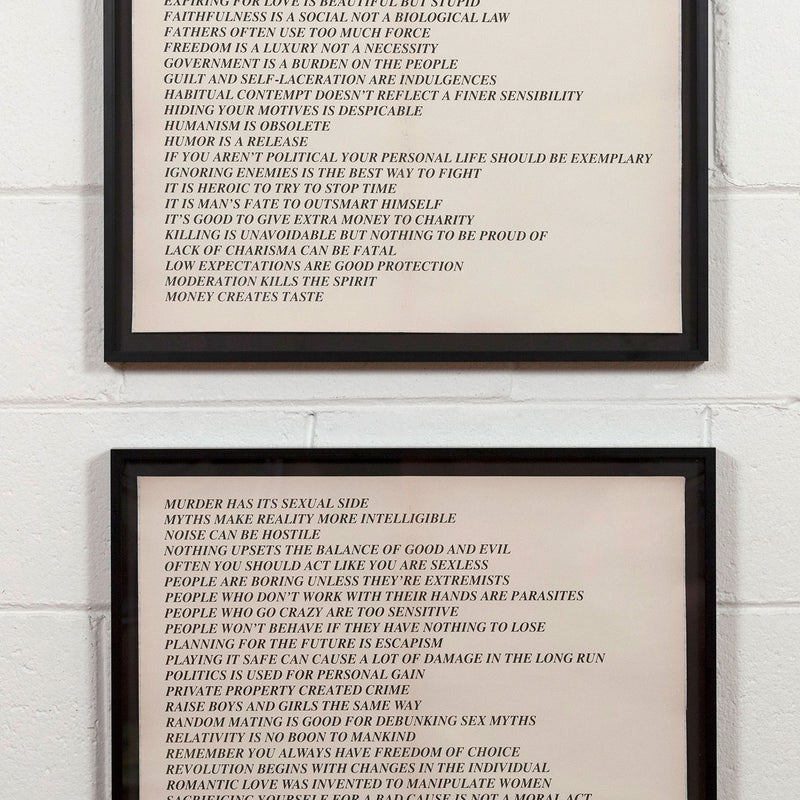 EXPIRING FOR LOVE IS BEAUTIFUL BUT STUPID
FAITHFULNESS IS A SOCIAL NOT A BIOLOGICAL LAW
FATHERS OFTEN USE TOO MUCH FORCE
FREEDOM IS A LUXURY NOT A NECESSITY
GOVERNMENT IS A BURDEN ON THE PEOPLE
GUILT AND SELF-LACERATION ARE INDULGENCES
HABITUAL CONTEMPT DOESN'T REFLECT A FINER SENSIBILITY
HIDING YOUR MOTIVES IS DESPICABLE
HUMANISM IS OBSOLETE
HUMOR IS A RELEASE
IF YOU AREN'T POLITICAL YOUR PERSONAL LIFE SHOULD BE EXEMPLARY
IGNORING ENEMIES IS THE BEST WAY TO FIGHT
IT IS HEROIC TO TRY TO STOP TIME
IT IS MAN'S FATE TO OUTSMART HIMSELF
IT'S GOOD TO GIVE EXTRA MONEY TO CHARITY
KILLING IS UNAVOIDABLE BUT NOTHING TO BE PROUD OF
LACK OF CHARISMA CAN BE FATAL
LOW EXPECTATIONS ARE GOOD PROTECTION
MODERATION KILLS THE SPIRIT
MONEY CREATES TASTE
MURDER HAS ITS SEXUAL SIDE
MYTHS MAKE REALITY MORE INTELLIGIBLE
NOISE CAN BE HOSTILE
NOTHING UPSETS THE BALANCE OF GOOD AND EVIL
OFTEN YOU SHOULD ACT LIKE YOU ARE SEXLESS
PEOPLE ARE BORING UNLESS THEY'RE EXTREMISTS
PEOPLE WHO DON'T WORK WITH THEIR HANDS ARE PARASITES
PEOPLE WHO GO CRAZY ARE TOO SENSITIVE
PEOPLE WON'T BEHAVE IF THEY HAVE NOTHING TO LOSE
PLANNING FOR THE FUTURE IS ESCAPISM
PLAYING IT SAFE CAN CAUSE A LOT OF DAMAGE IN THE LONG RUN
POLITICS IS USED FOR PERSONAL GAIN
PRIVATE PROPERTY CREATED CRIME
RAISE BOYS AND GIRLS THE SAME WAY
RANDOM MATING IS GOOD FOR DEBUNKING SEX MYTHS
RELATIVITY IS NO BOON TO MANKIND
REMEMBER YOU ALWAYS HAVE FREEDOM OF CHOICE
REVOLUTION BEGINS WITH CHANGES IN THE INDIVIDUAL
ROMANTIC LOVE WAS INVENTED TO MANIPULATE WOMEN
SACRIFICING YOURSELF FOR A BAD CAUSE IS NOT A MORAL ACT